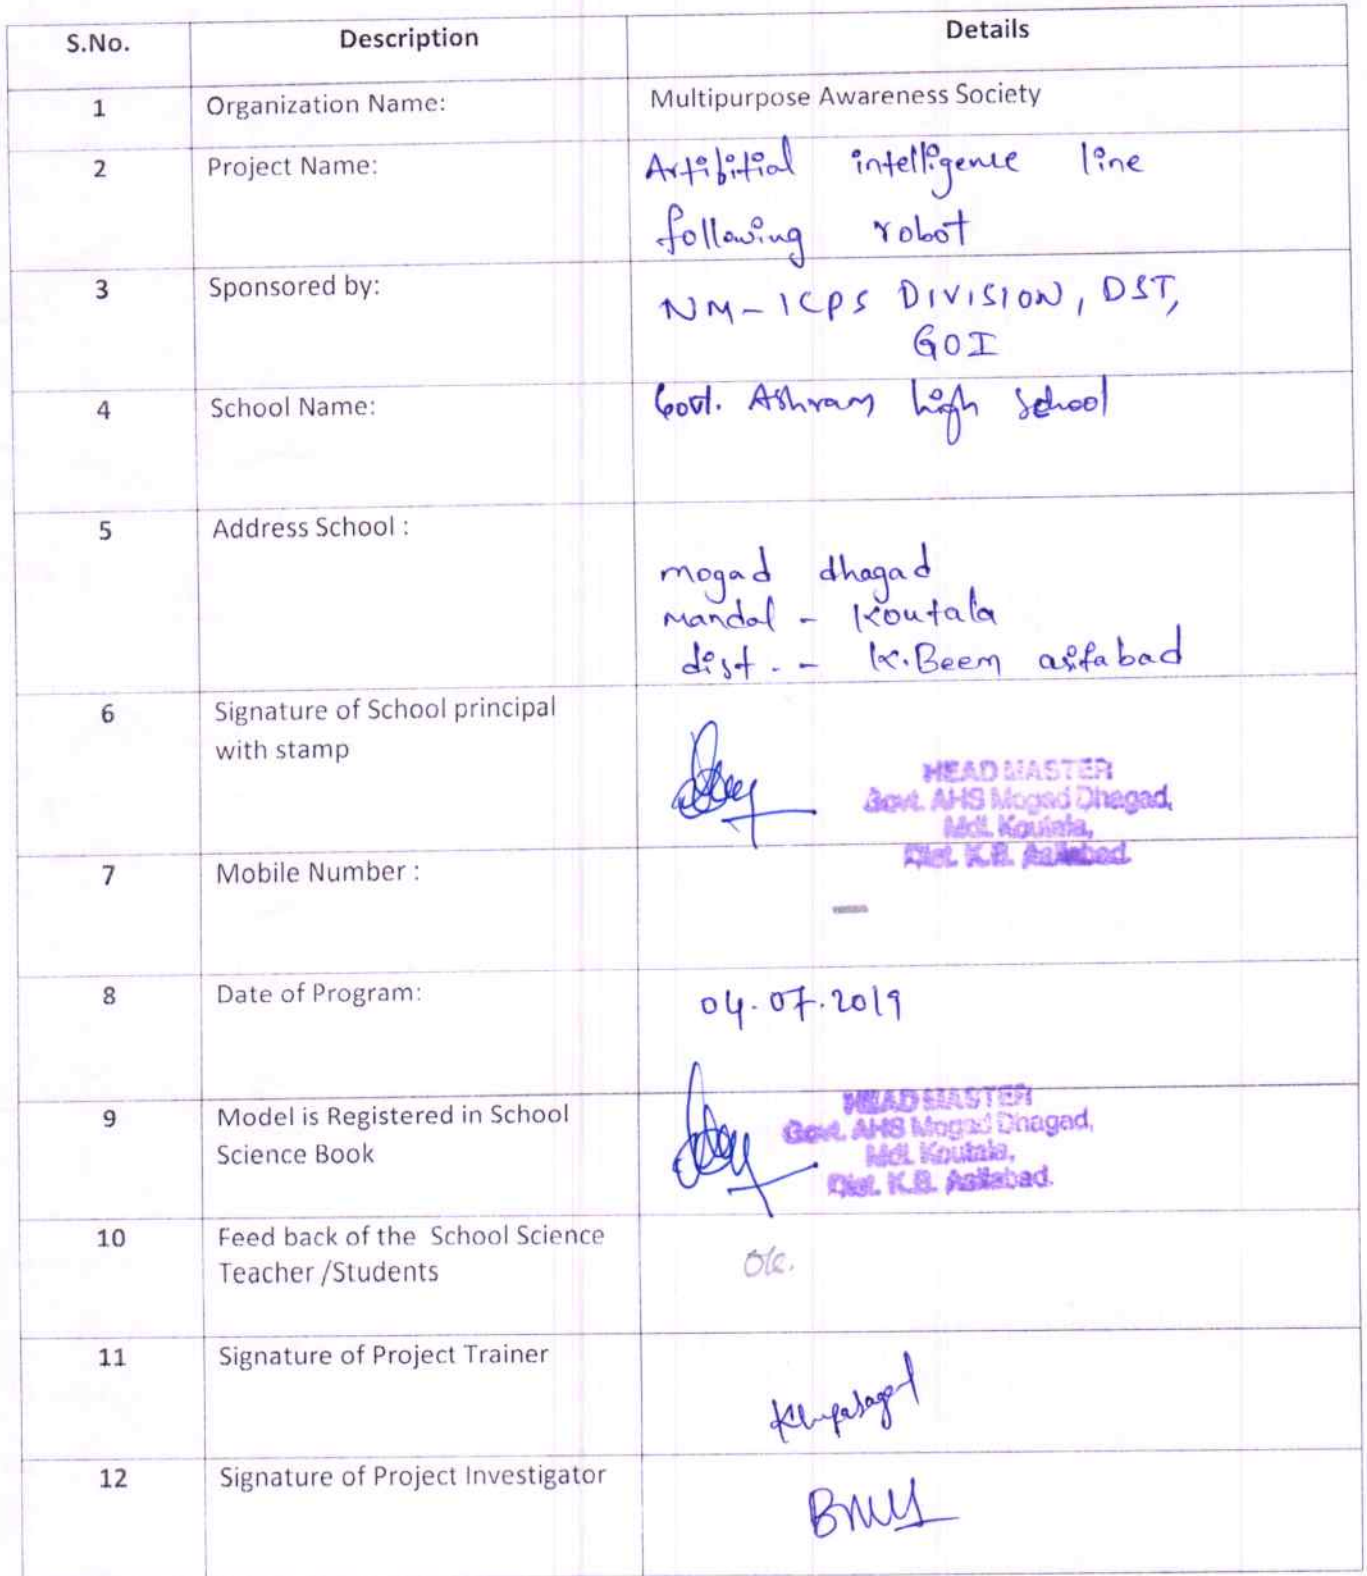 S.No. Description Details
1 Organization Name: Multipurpose Awareness Society
2 Project Name: Artibitial intelligence line
following robot
3 Sponsored by: NM-ICPS DIVISION, DST,
GOI
4 School Name: Govt. Ashram high school
5 Address School :
mogad dhagad
mandal - Koutala
dist. - K.Beem asifabad
6 Signature of School principal
with stamp
HEAD MASTER
Govt. AHS Mogad Dhagad,
Mdl. Koutala,
Dist. K.B. Asifabad.
7 Mobile Number :
—
8 Date of Program: 04.07.2019
9 Model is Registered in School
Science Book
HEAD MASTER
Govt. AHS Mogad Dhagad,
Mdl. Koutala,
Dist. K.B. Asifabad.
10 Feed back of the School Science
Teacher /Students
Ok.
11 Signature of Project Trainer
12 Signature of Project Investigator